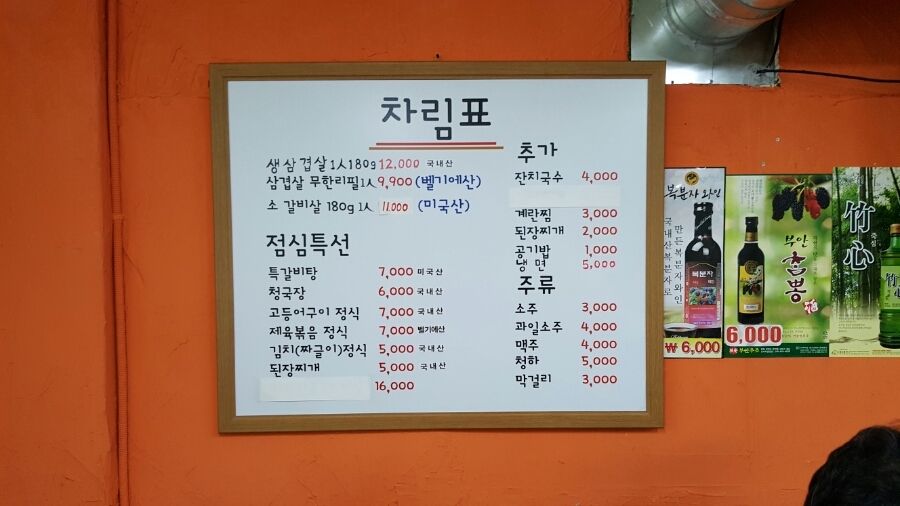 차림표
생삼겹살 1人 180g 12,000 국내산
삼겹살 무한리필 1人 9,900 (벨기에산)
소 갈비살 180g 1人 11,000 (미국산)
점심특선
특갈비탕 7,000 미국산
청국장 6,000 국내산
고등어구이 정식 7,000 국내산
제육볶음 정식 7,000 벨기에산
김치(짜글이)정식 5,000 국내산
된장찌개 5,000 국내산
16,000
추가
잔치국수 4,000
계란찜 3,000
된장찌개 2,000
공기밥 1,000
냉면 5,000
주류
소주 3,000
과일소주 4,000
맥주 4,000
청하 5,000
막걸리 3,000
복분자 와인
국내산 복분자로
만든 복분자와인
복분자
₩ 6,000
부안
참뽕
6,000
竹心
죽심